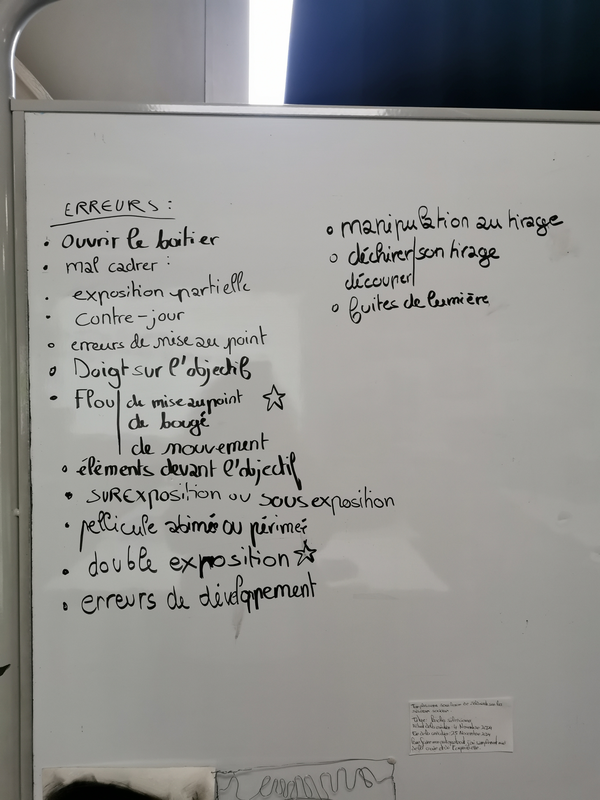 ERREURS :
• Ouvrir le boitier
• mal cadrer :
• exposition partielle
• Contre-jour
• erreurs de mise au point
• Doigt sur l'objectif
• Flou | de mise au point ☆
de bougé
de mouvement
• éléments devant l'objectif
• surexposition ou sous exposition
• pellicule abimé ou périmée
• double exposition ☆
• erreurs de développement
• manipulation au tirage
• déchirer | son tirage
découper
• fuites de lumière